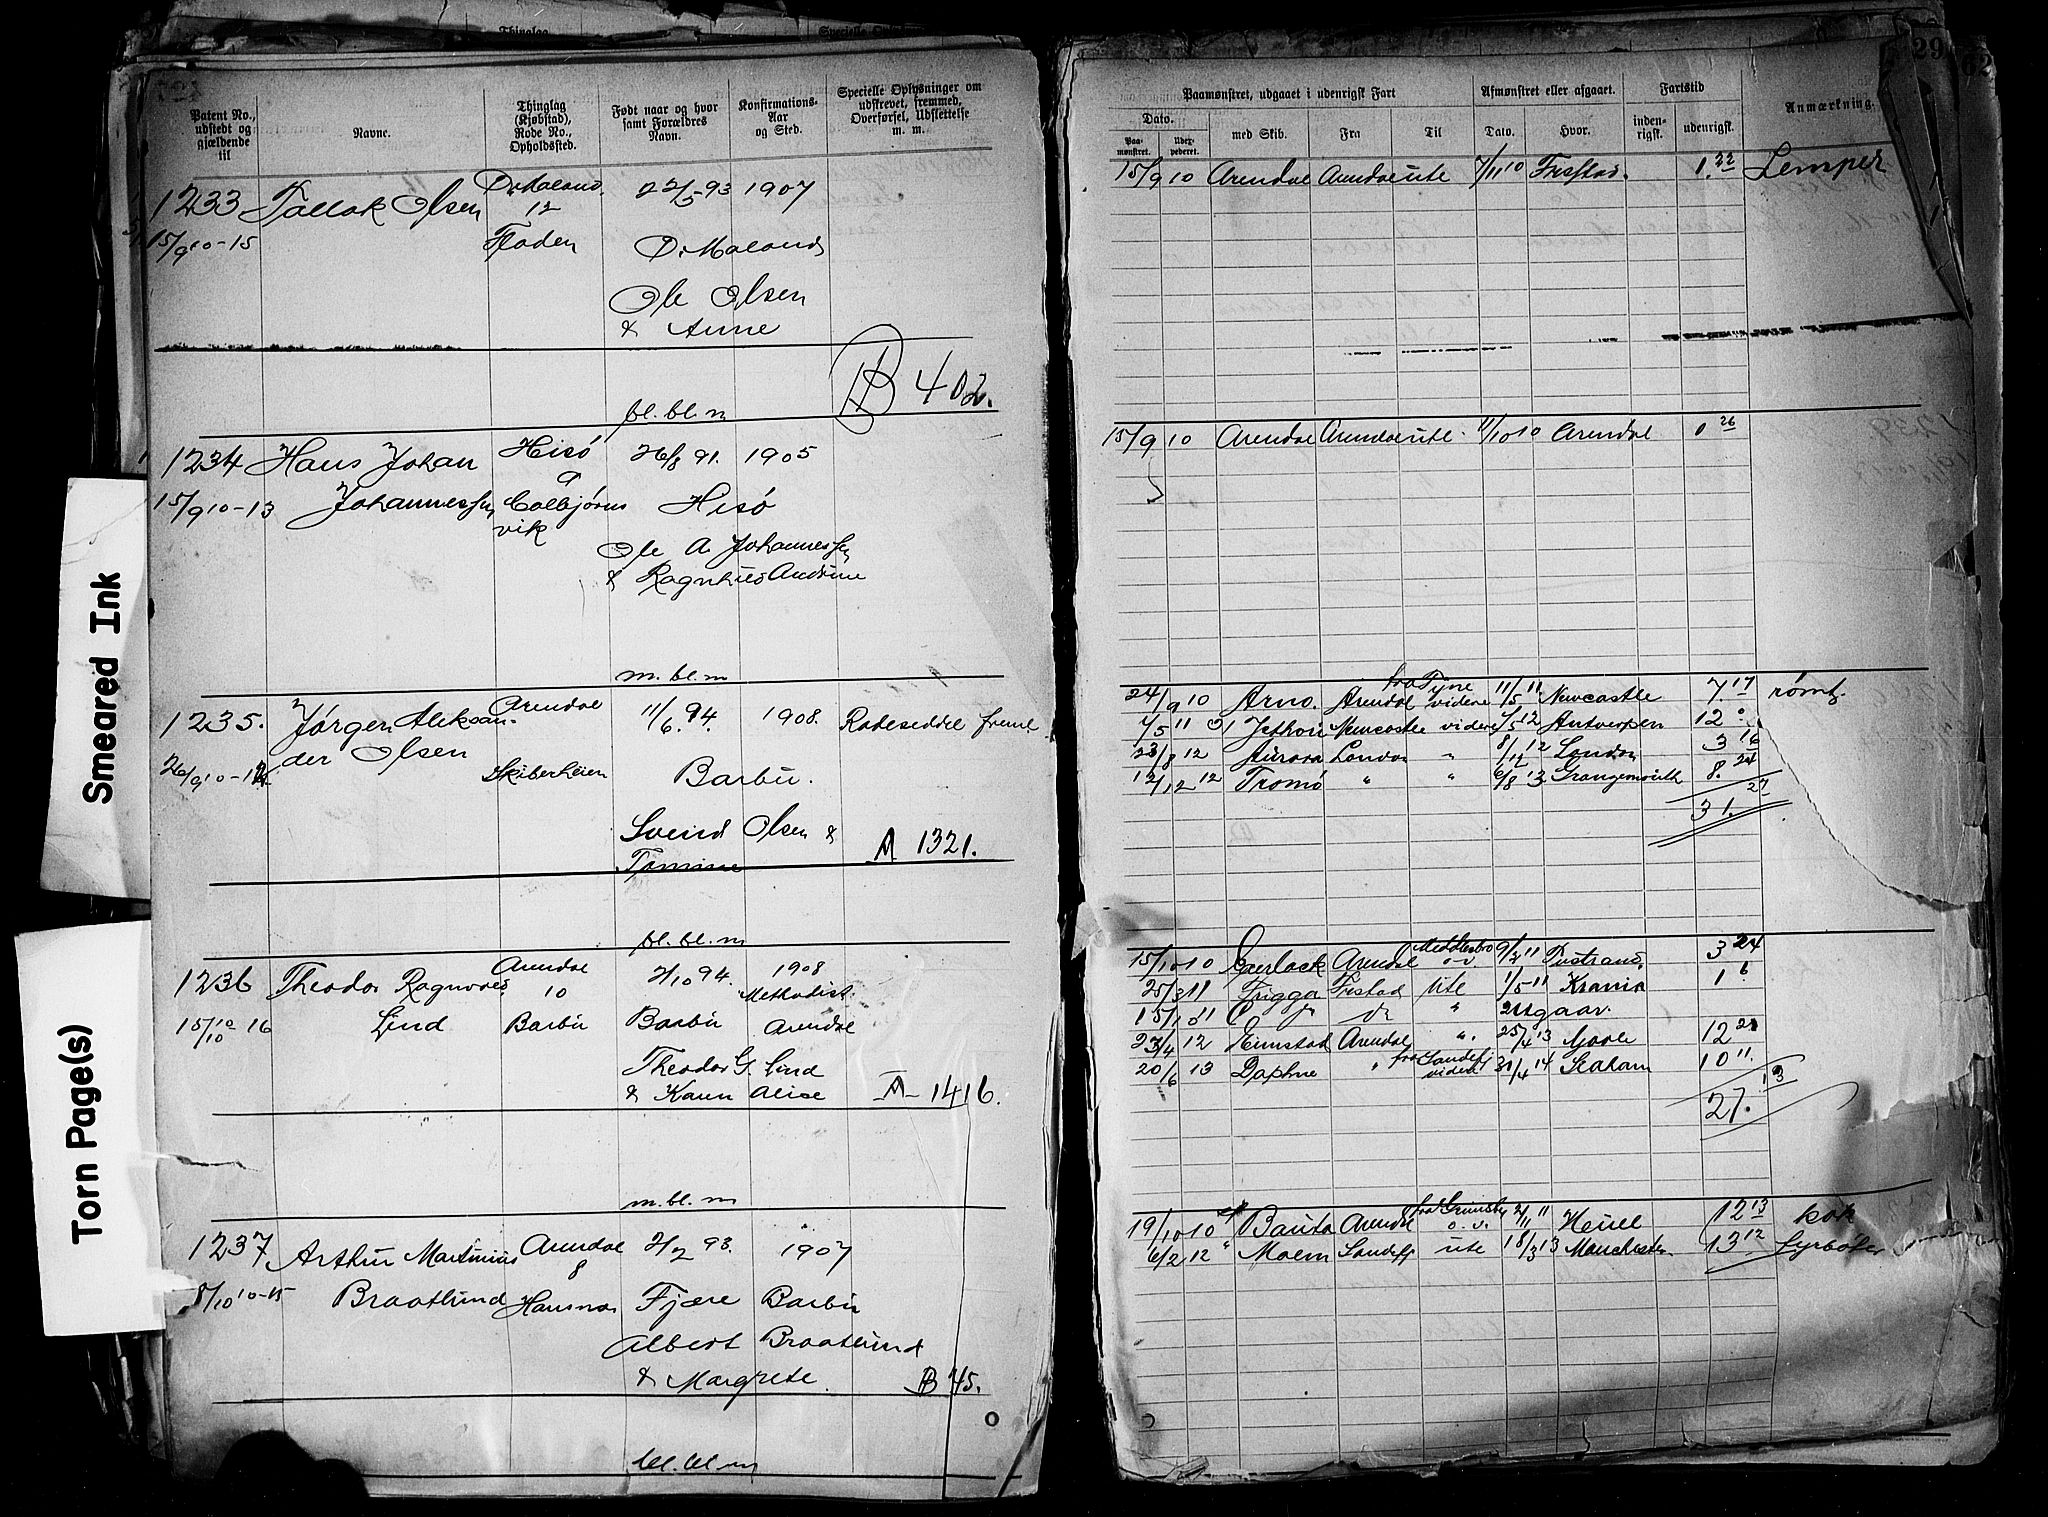 Smeared Ink
Torn Page(s)
Patent No., udstedt og gjældende til
Navne.
Thinglag (Kjøbstad), Rode No., Opholdssted.
Født naar og hvor samt Forældres Navn.
Konfirmations-Aar og Sted.
Specielle Oplysninger om udskrevet, fremmed, Overførsel, Udslettelse m. m.
1233 Tallak Olsen Ø. Moland 22/5 93 1907
12
15/9 10-15 Fladen Ø. Moland
Ole Olsen
& Anne
B 402.
bl. bl. m
1234 Hans Johan Hisø 26/8 91. 1905
9
15/9 10-13 Johannessen Colbjørns Hisø
vik
Ole A. Johannessen
& Ragnhild Andrine
m. bl. m
1235. Jørgen Aleksan- Arendal 11/6 94. 1908. Rodeseddel freml.
der Olsen
26/9 10- Skiberheien Barbu.
Svend Olsen &
Tomine A 1321.
bl. bl. m
1236 Theodor Ragnvald Arendal 2/10 94. 1908
10 Methodist.
15/10 10-16 Lind Barbu Barbu Arendal
Theodor G. Lind
& Karen Alise A 1416.
m. bl. m
1237 Arthur Martinius Arendal 2/2 93. 1907
8
8/10 10-15 Braatlund Hausnæs Fjære Barbu
Albert Braatlund
& Margrete. B 45.
bl. bl. m
29
62
Paamønstret, udgaaet i udenrigsk Fart
Afmønstret eller afgaaet.
Fartstid
Anmærkning.
Dato.
Paamønstret.
Udexpederet.
med Skib.
Fra
Til
Dato.
Hvor.
indenrigsk.
udenrigsk.
15/9 10 Arendal Arendal ute 7/11 10 Frestad. 1.22 Lemper
15/9 10 Arendal Arendal ute. 11/10 10 Arendal 1 26
24/9 10 Arno. Arendal fra Tyne videre 11/5 11 Newcastle 7.17 rømt.
Newcastle videre 12 Antwerpen 12
23/8 12 Aurora London " 12 London 3 16
12/12 12 Tromø " " 6/8 13 Grangemouth 8. 24
31. 27
15/10 10 Arendal Middlesbro o.v. 9/2 11 3 24
25/3 11 Frigga Frestad ute 1/5 11 Krania 1 6
" Utgaar.
12 Arendal ". 25/4 13 12
20/6 13 Daphne " fra Sandefj videre 14 Seaham 10 11.
27. 13
19/10 10 Bauta Arendal fra Grimsby o.v. 2/11 11 12 13 kok
6/2 12 " Malm Sandefj ute 18/3 13 Manchester 13 12 fyrbøter